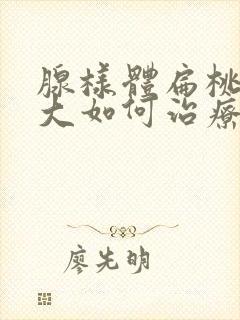 腺樣體扁桃
大如何治療
廖先明